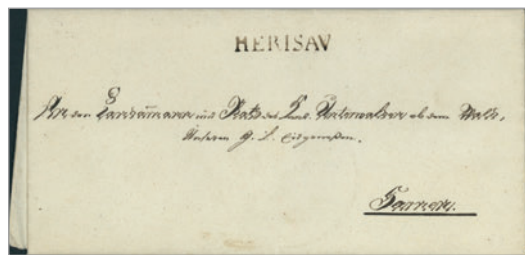 HERISAV
An den Landammann und Rath des Kant. Unterwalden ob dem Wald,
Unseren G. L. Eidgenossen.
Sarnen.